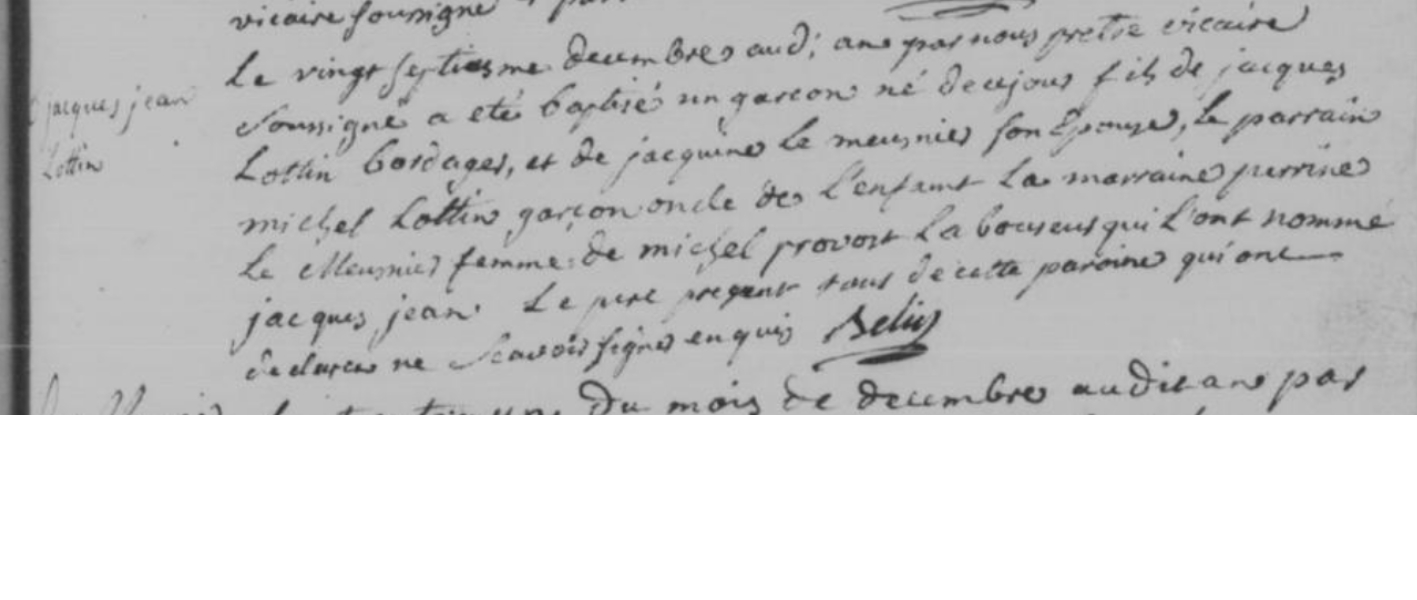 vicaire soussigné
Le vingt septiesme decembre aud; an par nous pretre vicaire
jacques jean
soussigné a eté baptisé un garcon né de cejour fils de jacques
Lottin
Lottin bordager, et de jacquine Le meusnier son Epouse, le parrain
michel Lottin garçon oncle de L'enfant La marraine perrine
Le Meusnier femme de michel provost Laboureur qui L'ont nommé
jacques jean Le pere present tous de cette paroisse qui ont
declarer ne scavoir signer enquis
du mois de decembre audit an par